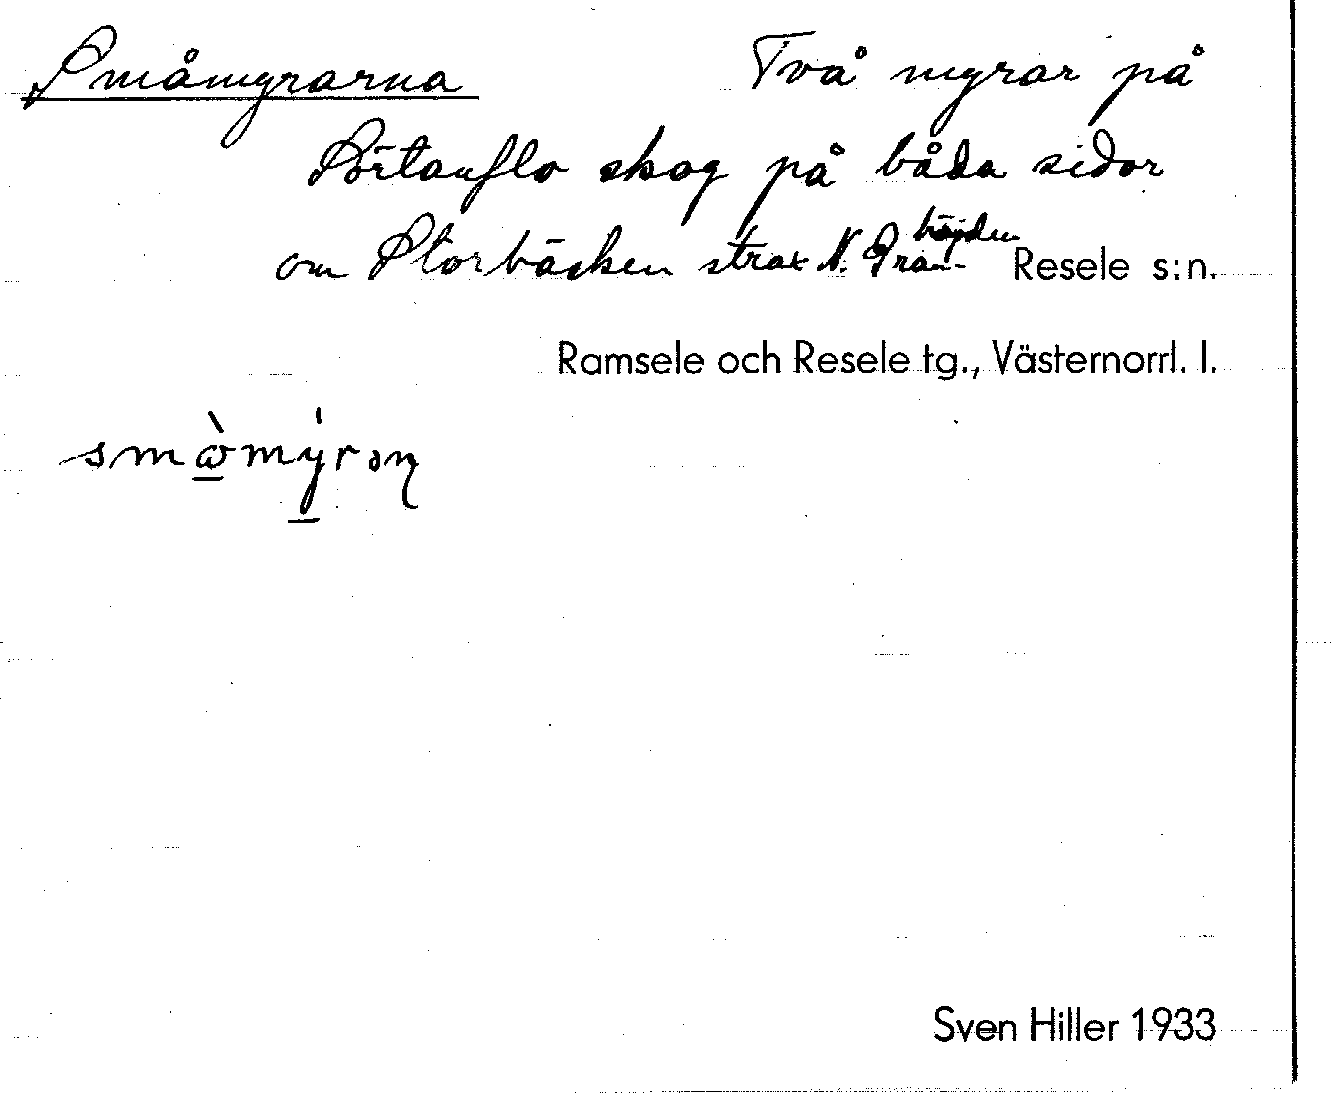 Småmyrarna Två myrar på
Sörtanflo skog på båda sidor
om Storbäcken strax N. Gran-höjden
Resele s:n.
Ramsele och Resele tg., Västernorrl. l.
Sven Hiller 1933